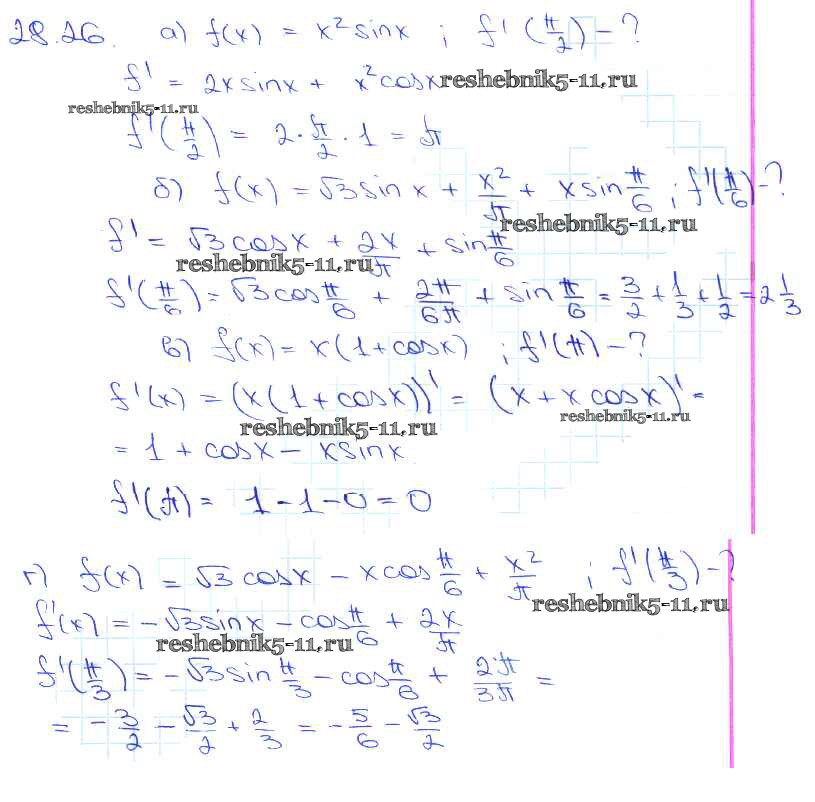 28.26. а) f(x) = x² sinx ; f'(π/2) - ?
f' = 2x sinx + x² cosx reshebnik5-11.ru
reshebnik5-11.ru
f'(π/2) = 2·π/2·1 = π
б) f(x) = √3 sin x + x²/π + x sin π/6 ; f'(π/6) - ?
reshebnik5-11.ru
f' = √3 cosx + 2x/π + sin π/6
reshebnik5-11.ru
f'(π/6) = √3 cos π/6 + 2π/6π + sin π/6 = 3/2 + 1/3 + 1/2 = 2 1/3
в) f(x) = x(1+cosx) ; f'(π) - ?
f'(x) = (x(1+cosx))' = (x + x cosx)' =
reshebnik5-11.ru
reshebnik5-11.ru
= 1 + cosx - x sinx
f'(π) = 1 - 1 - 0 = 0
г) f(x) = √3 cosx - x cos π/6 + x²/π ; f'(π/3) - ?
reshebnik5-11.ru
f'(x) = -√3 sinx - cos π/6 + 2x/π
reshebnik5-11.ru
f'(π/3) = -√3 sin π/3 - cos π/6 + 2·π/3π =
= -3/2 - √3/2 + 2/3 = -5/6 - √3/2